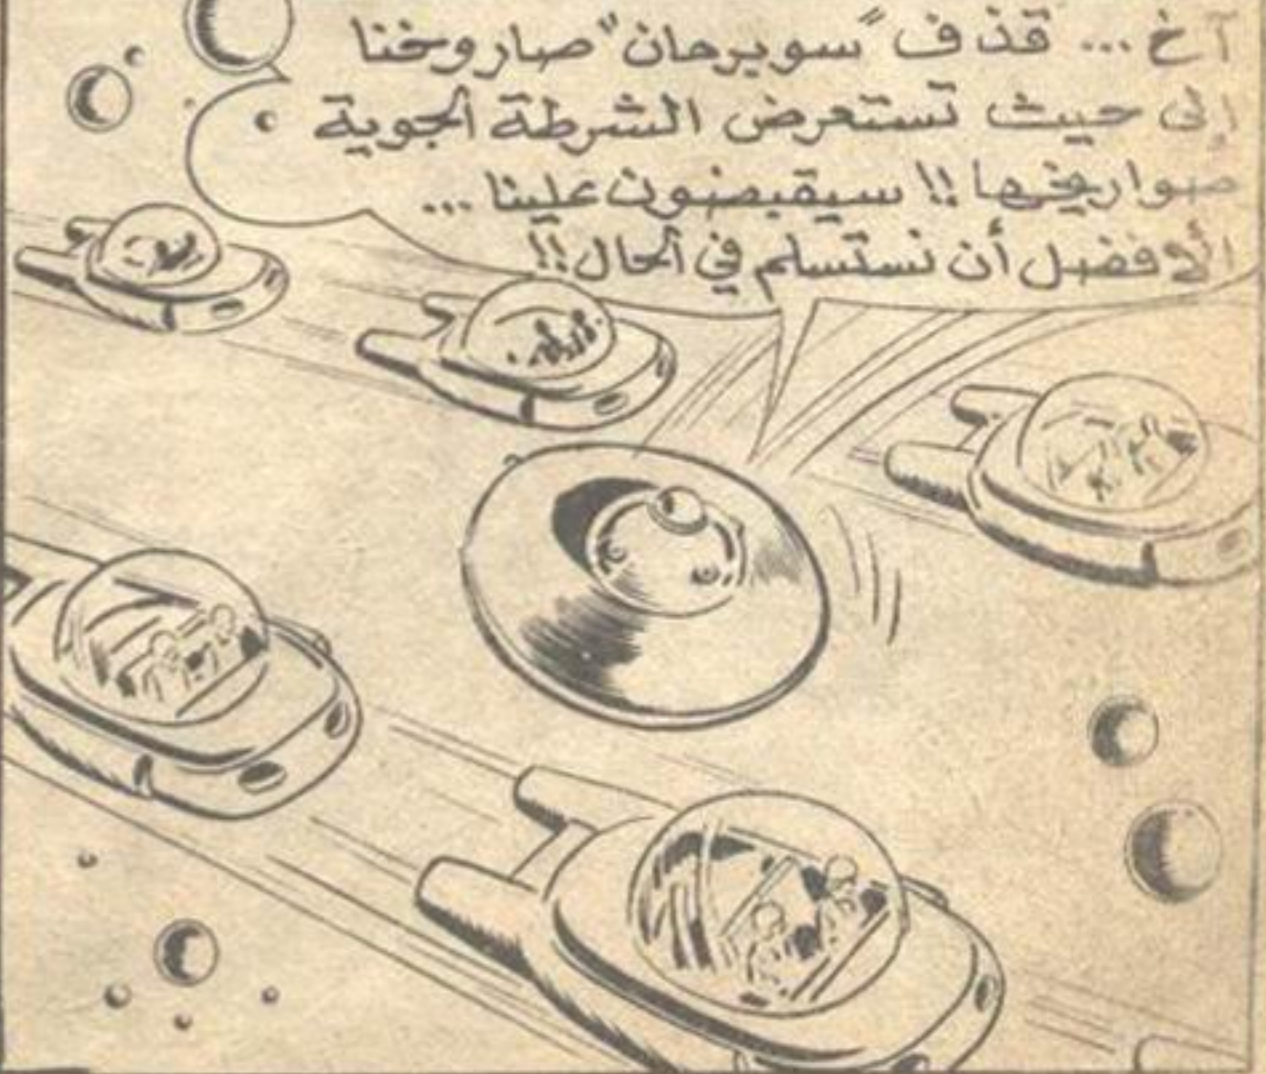 آخ... قذف "سوبرمان" صاروخنا
إلى حيث تستعرض الشرطة الجوية
صواريخها!! سيقبضون علينا...
الأفضل أن نستسلم في الحال!!